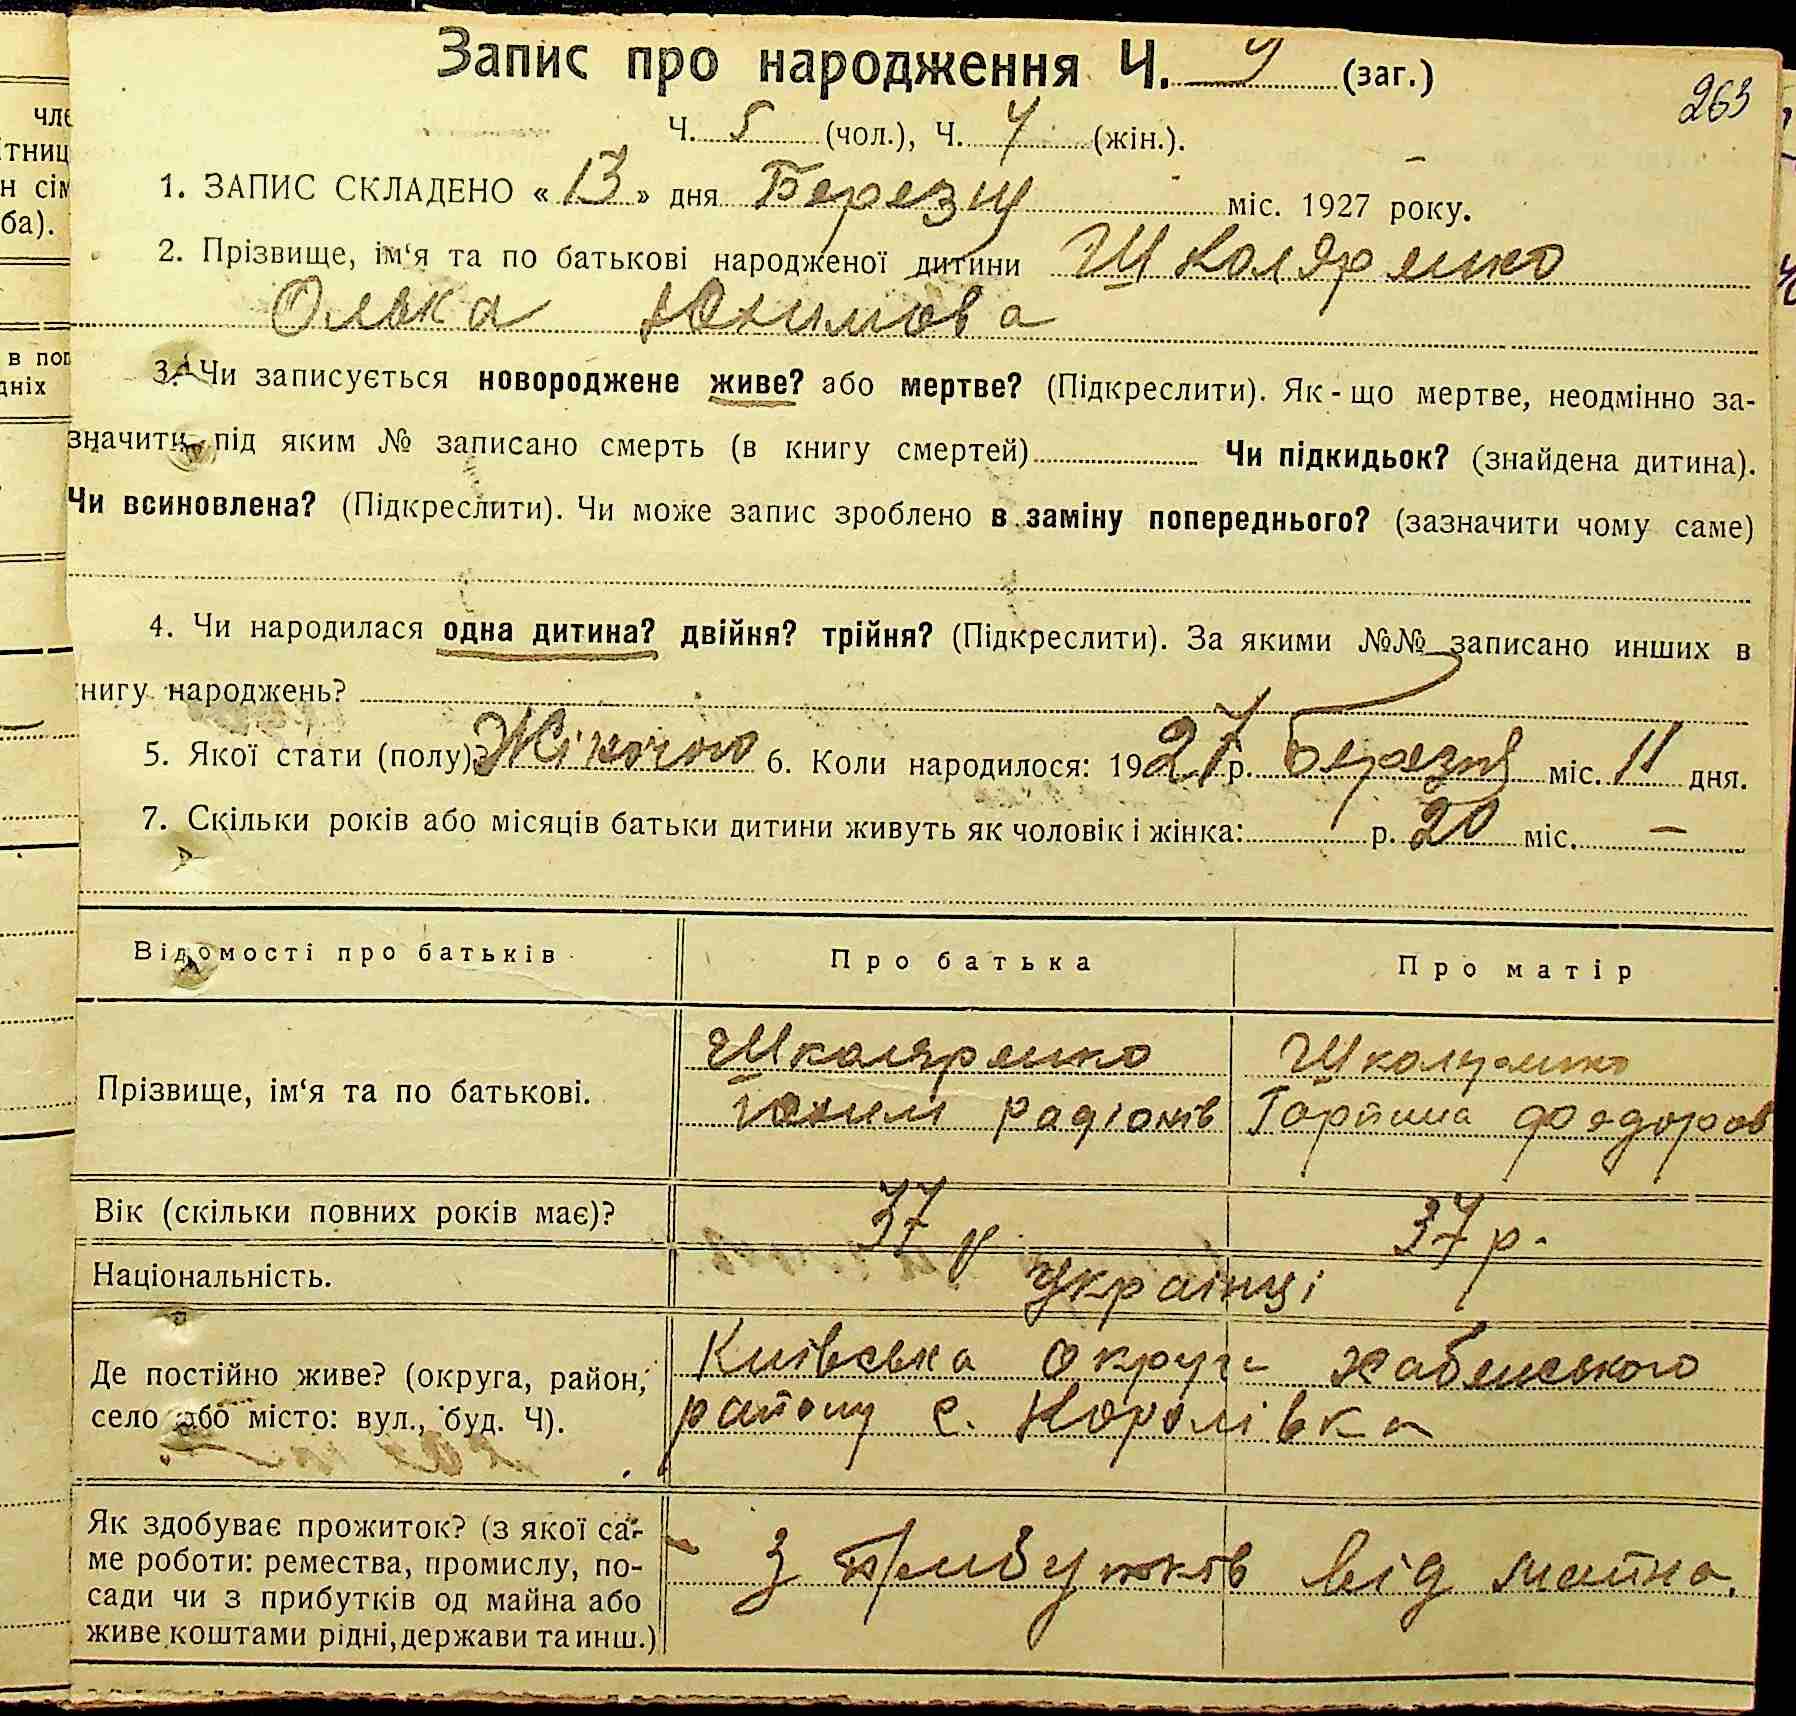 Запис про народження Ч. 9 (заг.)
263
Ч. 5 (чол.), Ч. 4 (жін.).
1. ЗАПИС СКЛАДЕНО «13» дня Березня міс. 1927 року.
2. Прізвище, ім‘я та по батькові народженої дитини Школяренко
Олька Юхимова
3. Чи записується новороджене живе? або мертве? (Підкреслити). Як-що мертве, неодмінно за-
значити під яким № записано смерть (в книгу смертей) Чи підкидьок? (знайдена дитина).
Чи всиновлена? (Підкреслити). Чи може запис зроблено в заміну попереднього? (зазначити чому саме)
4. Чи народилася одна дитина? двійня? трійня? (Підкреслити). За якими №№ записано инших в
нигу народжень?
5. Якої стати (полу)? Жіночого 6. Коли народилося: 1927 р. Березня міс. 11 дня.
7. Скільки років або місяців батьки дитини живуть як чоловік і жінка: р. 20 міс. —
Відомості про батьків Про батька Про матір
Прізвище, ім‘я та по батькові.
Школяренко Школяренко
Юхим радіонів Горпина Феодоров
Вік (скільки повних років має)? 37 р 37 р.
Національність. Українці
Де постійно живе? (округа, район, село або місто: вул., буд. Ч).
Київська округа Хабенського
району с. Королівка
Як здобуває прожиток? (з якої са-
ме роботи: ремества, промислу, по-
сади чи з прибутків од майна або
живе коштами рідні, держави та инш.)
з прибутків від майна.
чле
ітниц
н сім
ба).
в поп
дніх